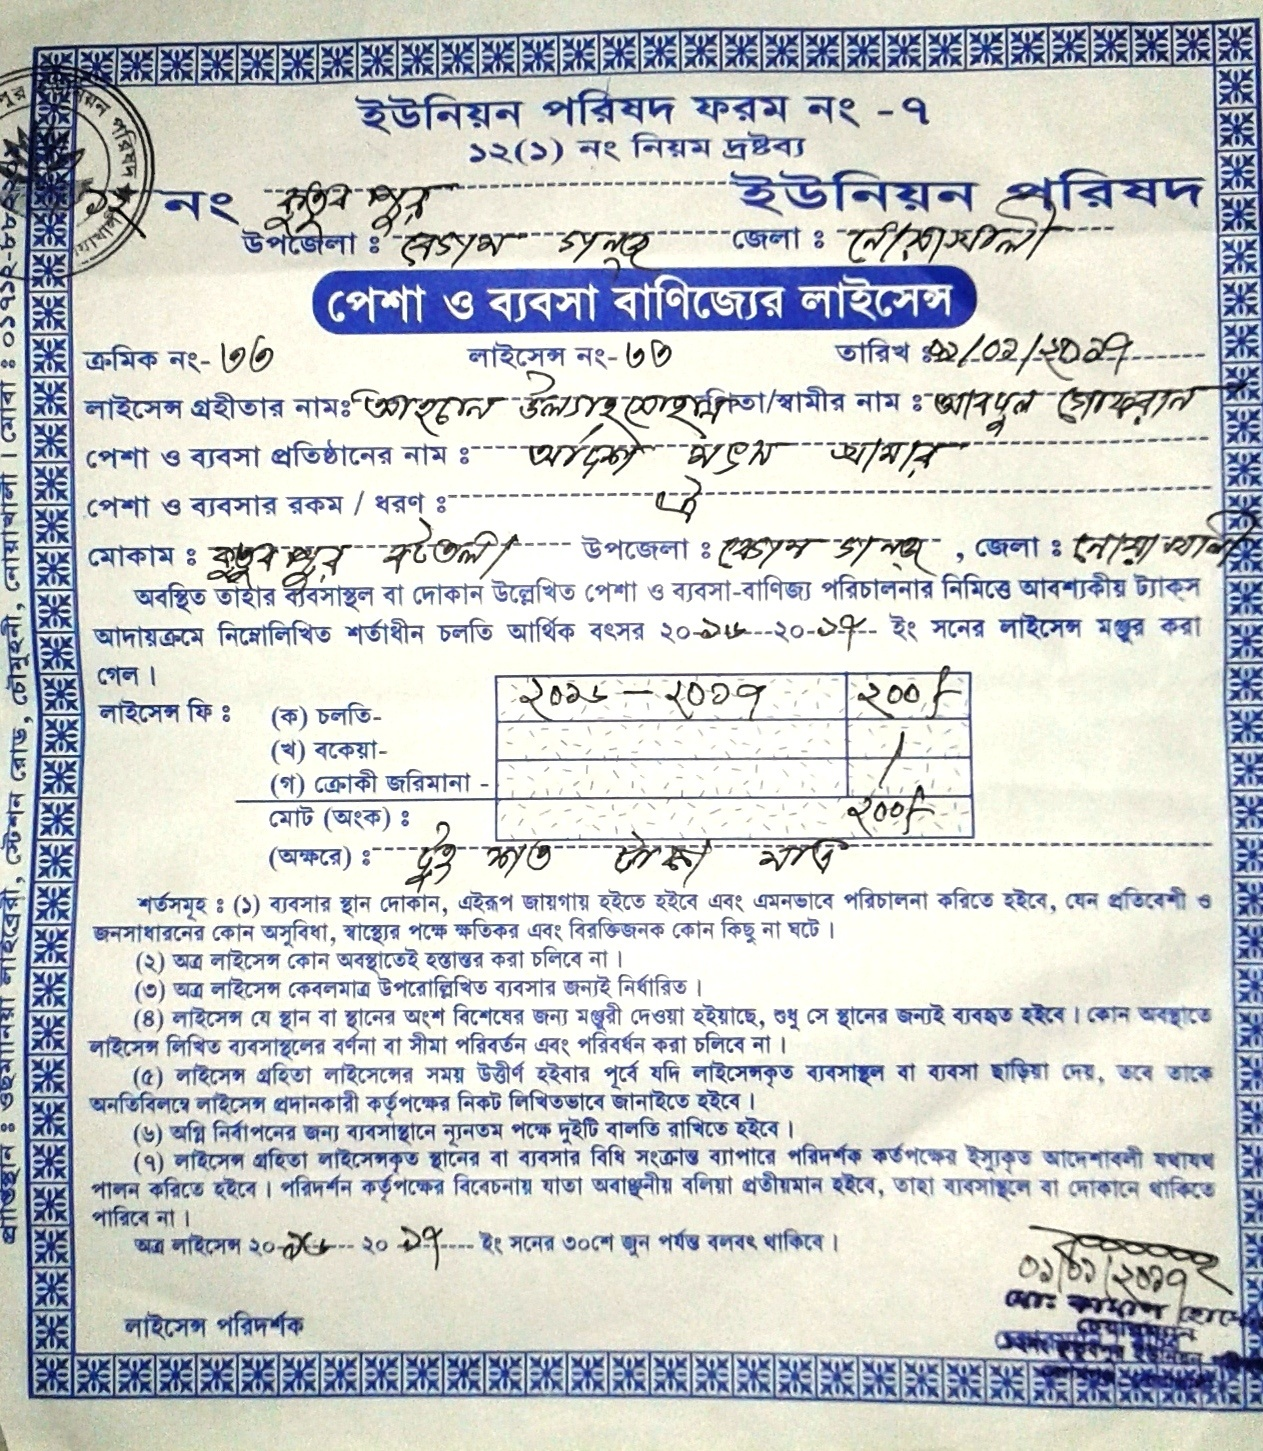 ইউনিয়ন পরিষদ ফরম নং -৭
১২(১) নং নিয়ম দ্রষ্টব্য
১২ নং কুতুব পুর ইউনিয়ন পরিষদ
উপজেলা : বেগম গঞ্জ জেলা : নোয়াখালী
পেশা ও ব্যবসা বাণিজ্যের লাইসেন্স
ক্রমিক নং- ৩৩ লাইসেন্স নং- ৩৩ তারিখ : /০১/২০১৭
লাইসেন্স গ্রহীতার নাম: উল্যাহ পিতা/স্বামীর নাম : আবদুল গোফরান
পেশা ও ব্যবসা প্রতিষ্ঠানের নাম : আদর্শ মৎস খামার
পেশা ও ব্যবসার রকম / ধরণ : ঐ
মোকাম : কুতুব পুর বটতলী উপজেলা : বেগম গঞ্জ , জেলা : নোয়াখালী
অবস্থিত তাহার ব্যবসাস্থল বা দোকান উল্লেখিত পেশা ও ব্যবসা-বাণিজ্য পরিচালনার নিমিত্তে আবশ্যকীয় ট্যাক্স
আদায়ক্রমে নিম্নোলিখিত শর্তাধীন চলতি আর্থিক বৎসর ২০-১৬---২০-১৭-- ইং সনের লাইসেন্স মঞ্জুর করা
গেল।
লাইসেন্স ফি : (ক) চলতি- ২০১৬ - ২০১৭ ২০০/-
(খ) বকেয়া-
(গ) ক্রোকী জরিমানা -
মোট (অংক) : ২০০/-
(অক্ষরে) : দুই শত টাকা মাত্র
শর্তসমূহ : (১) ব্যবসার স্থান দোকান, এইরূপ জায়গায় হইতে হইবে এবং এমনভাবে পরিচালনা করিতে হইবে, যেন প্রতিবেশী ও
জনসাধারনের কোন অসুবিধা, স্বাস্থ্যের পক্ষে ক্ষতিকর এবং বিরক্তিজনক কোন কিছু না ঘটে।
(২) অত্র লাইসেন্স কোন অবস্থাতেই হস্তান্তর করা চলিবে না।
(৩) অত্র লাইসেন্স কেবলমাত্র উপরোল্লিখিত ব্যবসার জন্যই নির্ধারিত।
(৪) লাইসেন্স যে স্থান বা স্থানের অংশ বিশেষের জন্য মঞ্জুরী দেওয়া হইয়াছে, শুধু সে স্থানের জন্যই ব্যবহৃত হইবে। কোন অবস্থাতে
লাইসেন্স লিখিত ব্যবসাস্থলের বর্ণনা বা সীমা পরিবর্তন এবং পরিবর্ধন করা চলিবে না।
(৫) লাইসেন্স গ্রহিতা লাইসেন্সের সময় উত্তীর্ণ হইবার পূর্বে যদি লাইসেন্সকৃত ব্যবসাস্থল বা ব্যবসা ছাড়িয়া দেয়, তবে তাকে
অনতিবিলম্বে লাইসেন্স প্রদানকারী কর্তৃপক্ষের নিকট লিখিতভাবে জানাইতে হইবে।
(৬) অগ্নি নির্বাপনের জন্য ব্যবসাস্থানে ন্যূনতম পক্ষে দুইটি বালতি রাখিতে হইবে।
(৭) লাইসেন্স গ্রহিতা লাইসেন্সকৃত স্থানের বা ব্যবসার বিধি সংক্রান্ত ব্যাপারে পরিদর্শক কর্তৃপক্ষের ইস্যুকৃত আদেশাবলী যথাযথ
পালন করিতে হইবে। পরিদর্শন কর্তৃপক্ষের বিবেচনায় যাতা অবাঞ্ছনীয় বলিয়া প্রতীয়মান হইবে, তাহা ব্যবসাস্থলে বা দোকানে থাকিতে
পারিবে না।
অত্র লাইসেন্স ২০-১৬--- ২০ ১৭---- ইং সনের ৩০শে জুন পর্যন্ত বলবৎ থাকিবে।
০১/০১/২০১৭
মো: কামাল হোসেন
চেয়ারম্যান
লাইসেন্স পরিদর্শক
প্রাপ্তিস্থান : ওছমানিয়া লাইব্রেরী, স্টেশন রোড, চৌমুহনী, নোয়াখালী। মোবা :